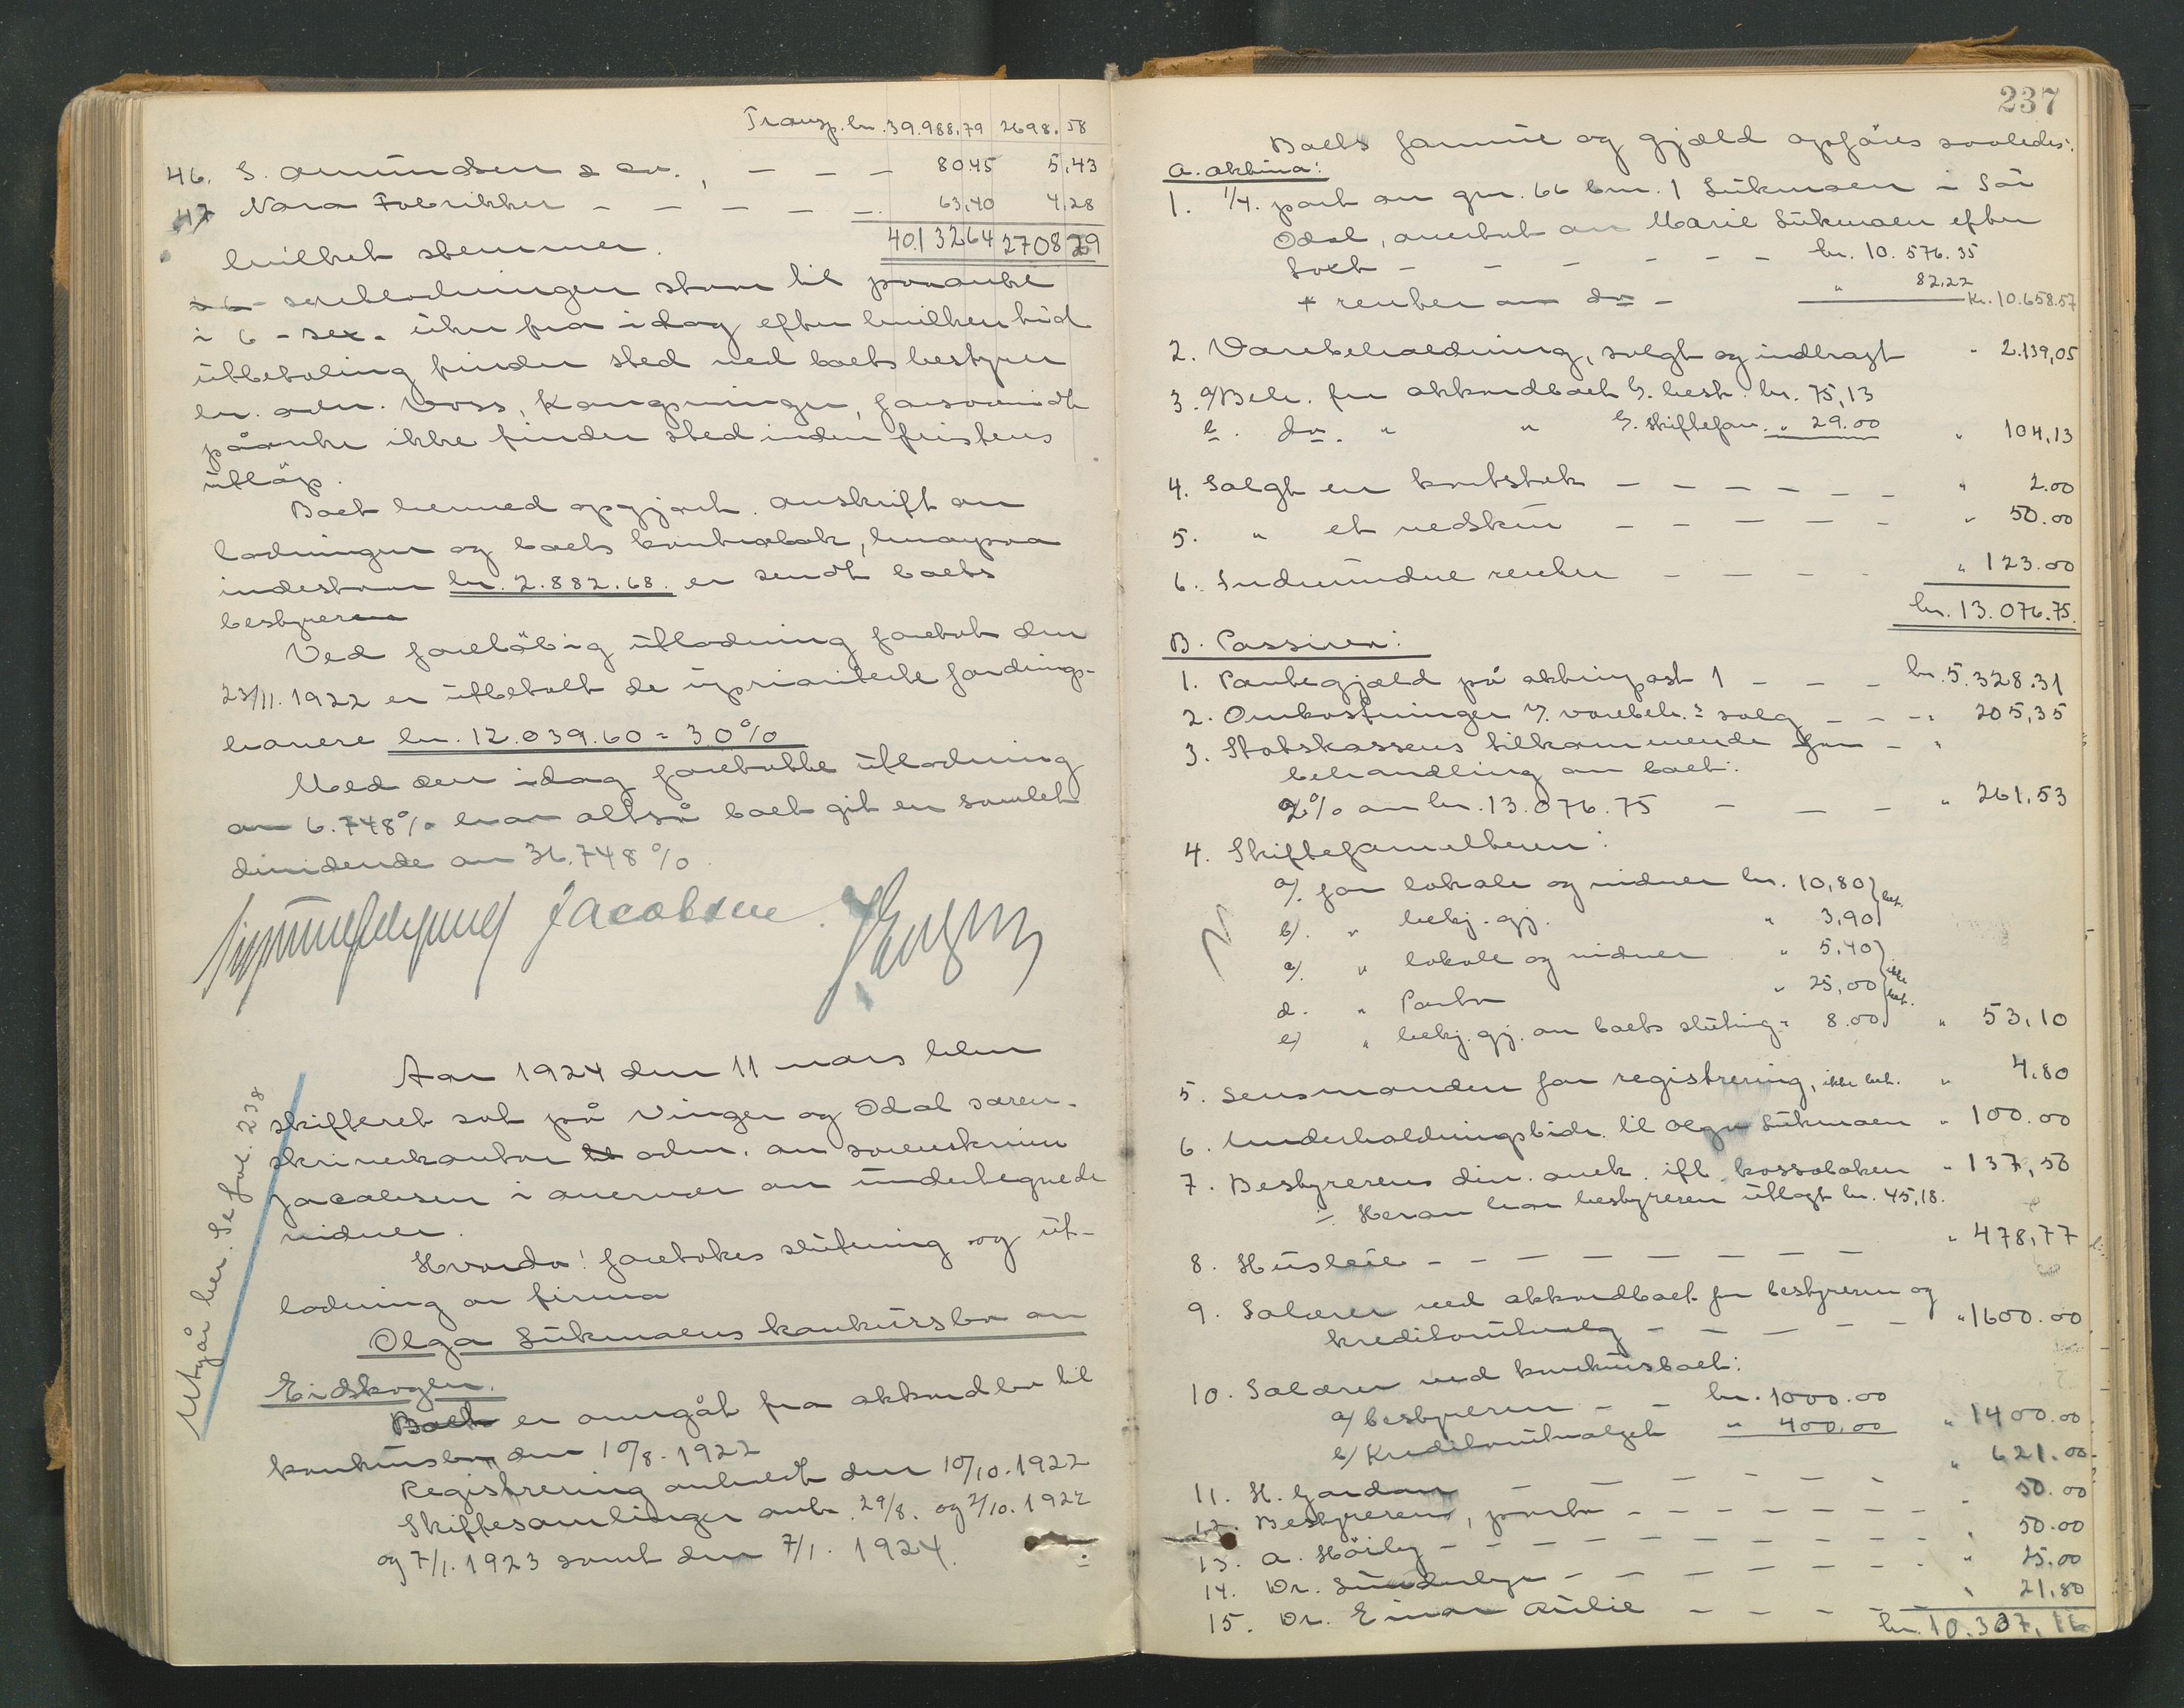 Transp. kr. 39.988,79 2698.58
46. S. Amundsen & Co., — — — 80.45 5,43
47 Nora Fabrikker — — — — — 63,40 4,28
hvilket stemmer. 40.132 64 2708 29
Utlodningen staar til paaanke
i 6 - sex - uker fra idag efter hvilken tid
utbetaling finder sted ved boets bestyrer
hr. adv. Voss, Kongsvinger, forsaavidt
påanke ikke finder sted inden fristens
utløp.
Boet hermed opgjort. Avskrift av
lodningen og boets kontrabok, hvorpaa
indestaar kr. 2.882.68. er sendt boets
bestyrer
Ved foreløbig utlodning foretat den
23/11. 1922 er utbetalt de uprioriterte fordrings-
havere kr. 12.039.60 = 30%
Med den idag foretatte utlodning
av 6.748% har altså boet git en samlet
dividende av 36.748%.
Jacobsen.
Utgår her. Se fol. 238
Aar 1924 den 11 mars blev
skifteret sat på Vinger og Odal soren-
skriverkontor adm. av sorenskriver
Jacobsen i nærvær av undertegnede
vidner.
Hvorda! foretokes slutning og ut-
lodning av firma
Olga Lukmoens konkursbo av
Eidskogen.
Boet er overgåt fra akkordbo til
konkursbo den 10/8. 1922
Registrering avholdt den 10/10. 1922
Skiftesamlinger avh. 29/8. og 2/10. 1922
og 7/1. 1923 samt den 7/1. 1924.
237
Boets formue og gjæld opføres saaledes:
A. Aktiva:
1. 1/4. part av gnr. 66 bnr. 1 Lukmoen i Sør
Odal, overtat av Marie Lukmoen efter
takst — — — — — — kr. 10.576.35
+ renter av do — " 82,22 kr. 10.658.57
2. Varebeholdning, solgt og indbragt " 2.139,05
3. a/ Beh. fra akkordboet h. best. kr. 75,13
b. do. " " h. skiftefor. " 29.00 " 104,13
4. Solgt en kortstok — — — — — — " 2.00
5. " et vedskur — — — — — " 50.00
6. Indvundne renter — — — — " 123.00
kr. 13.076.75.
B. Passiva:
1. Pantegjæld på aktivpost 1 — — — kr. 5.328.31
2. Omkostninger v. varebeh.s salg — — — " 205,35
3. Statskassens tilkommende for — "
behandling av boet:
2% av kr. 13.076.75 — — — " 261,53
4. Skifteforvalteren:
a/. for lokale og vidner kr. 10,80 bet.
b/. " bekj. gj. " 3,90
c/. " lokale og vidner " 5,40
d. " Porto " 25,00 ikke bet.
e/ " bekj. gj. av boets slutning " 8.00 " 53,10
5. Lensmanden for registrering, ikke bet. " 4.80
6. Underholdningsbidr. til Olga Lukmoen " 100.00
7. Bestyrerens div. ifl. kassaboken " 137,50
÷ Herav har bestyreren utlagt kr. 45,18.
8. Husleie — — — — — — — " 478,77
9. Salærer ved akkordboet for bestyreren og
kreditorutvalg — — — — — " 1600.00
10. Salærer ved konkursboet:
a/ bestyreren — — kr. 1000.00
b/ Kreditorutvalget " 400,00 " 1400.00
11. H. Gardar — — — — — " 621.00
12. Bestyreren, porto — — — — — — — " 50.00
13. A. Høiby — — — — — — — — — " 50.00
14. Dr. — — — — — — " 25.00
15. Dr. Einar Aulie — — — — — " 21,80
kr. 10.337,16